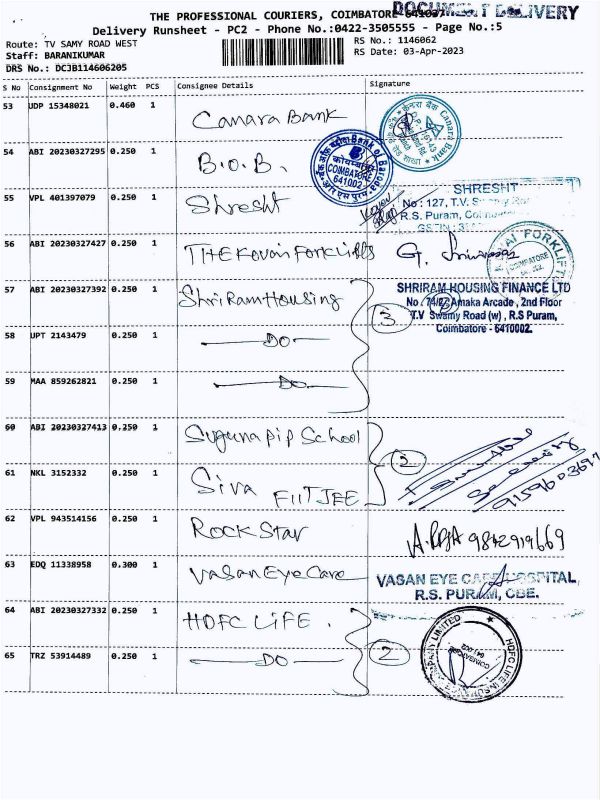 THE PROFESSIONAL COURIERS, COIMBATORE-641027
DOCUMENT DELIVERY
Delivery Runsheet - PC2 - Phone No.:0422-3505555 - Page No.:5
Route: TV SAMY ROAD WEST
RS No.: 1146062
Staff: BARANIKUMAR
RS Date: 03-Apr-2023
DRS No.: DCJB114606205
S No Consignment No Weight PCS Consignee Details Signature
53 UDP 15348021 0.460 1 Canara Bank
केनरा बैंक Canara Bank
54 ABI 20230327295 0.250 1 B.O.B.
Bank of Baroda
COIMBATORE
641002
55 VPL 401397079 0.250 1 Shresht
SHRESHT
No : 127, T.V. Swamy
R.S. Puram,
GSTIN :
56 ABI 20230327427 0.250 1 THE Kovai Forklifts G. Srinivasan
KOVAI FORKLIFT
COIMBATORE
57 ABI 20230327392 0.250 1 Shri Ram Housing 3
SHRIRAM HOUSING FINANCE LTD
Amaka Arcade, 2nd Floor
T.V Swamy Road (w) , R.S Puram,
Coimbatore - 6410002.
58 UPT 2143479 0.250 1 DO
59 MAA 859262821 0.250 1 DO
60 ABI 20230327413 0.250 1 Suguna pip School 2
61 NKL 3152332 0.250 1 Siva FIITJEE
9159603697
62 VPL 943514156 0.250 1 Rock Star A. RAJA 9842919669
63 EDQ 11338958 0.300 1 Vasan Eye Care
VASAN EYE CARE HOSPITAL,
R.S. PURAM, CBE.
64 ABI 20230327332 0.250 1 HDFC LIFE . 2
HDFC LIFE INSURANCE COMPANY LIMITED
COIMBATORE
641 002
65 TRZ 53914489 0.250 1 DO